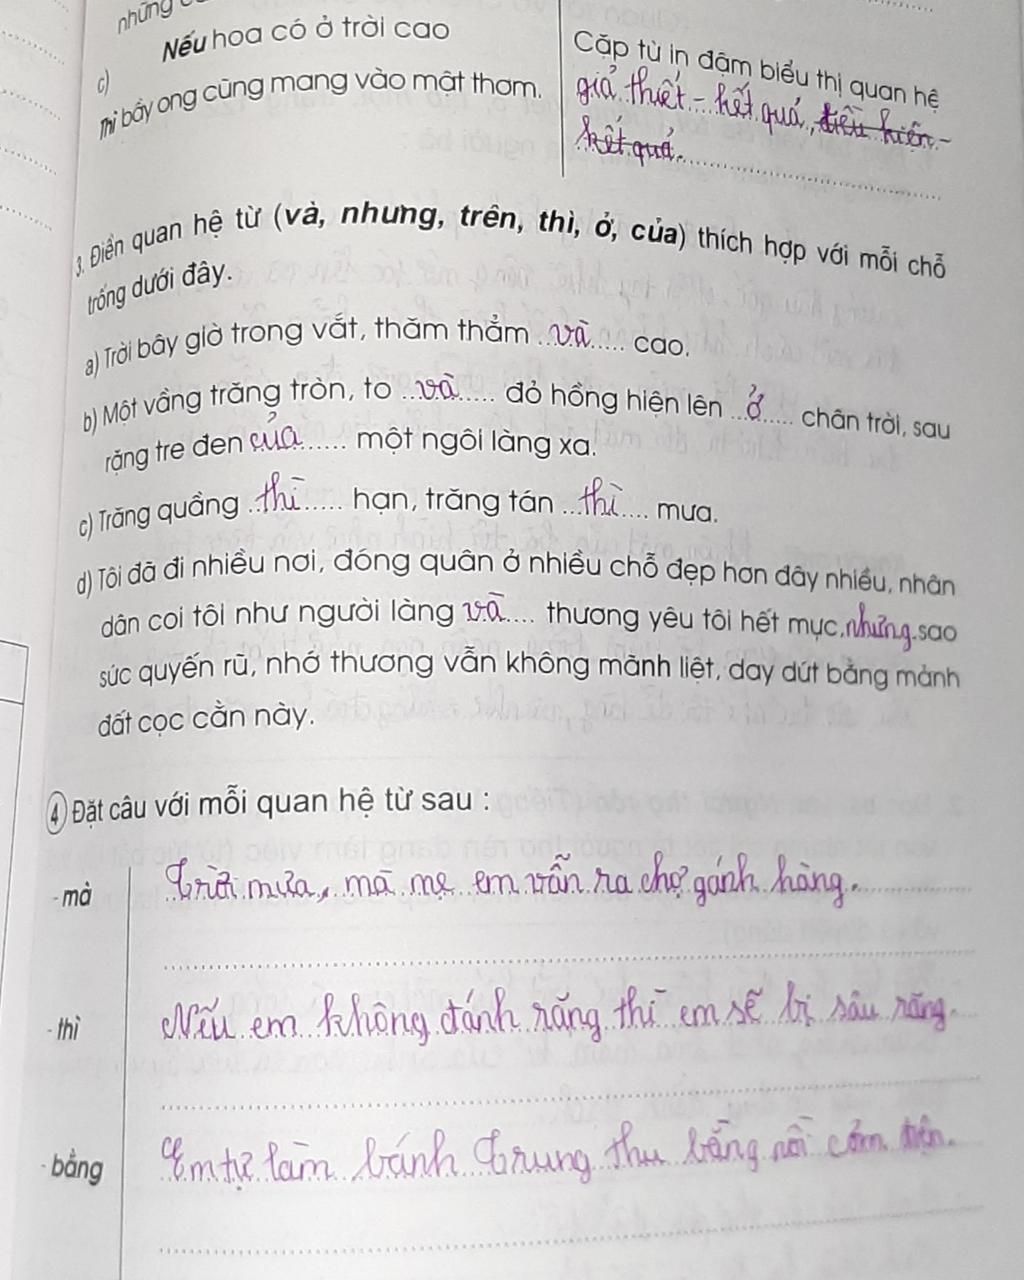 những
c)
Nếu hoa có ở trời cao
Thì bầy ong cũng mang vào mật thơm.
Cặp từ in đậm biểu thị quan hệ
giả thiết - kết quả, điều kiện -
kết quả.
3. Điền quan hệ từ (và, nhưng, trên, thì, ở, của) thích hợp với mỗi chỗ
trống dưới đây.
a) Trời bây giờ trong vắt, thăm thẳm ..và..... cao.
b) Một vầng trăng tròn, to ...và..... đỏ hồng hiện lên ...ở..... chân trời, sau
rặng tre đen của....... một ngôi làng xa.
c) Trăng quầng ..thì..... hạn, trăng tán ...thì.... mưa.
d) Tôi đã đi nhiều nơi, đóng quân ở nhiều chỗ đẹp hơn đây nhiều, nhân
dân coi tôi như người làng và.... thương yêu tôi hết mực, nhưng.sao
sức quyến rũ, nhớ thương vẫn không mãnh liệt, day dứt bằng mảnh
đất cọc cằn này.
4 Đặt câu với mỗi quan hệ từ sau :
- mà
Trời mưa, mà mẹ em vẫn ra chợ gánh hàng.
- thì
Nếu em không đánh răng thì em sẽ bị sâu răng.
- bằng
Em tự làm bánh Trung thu bằng nồi cơm điện.